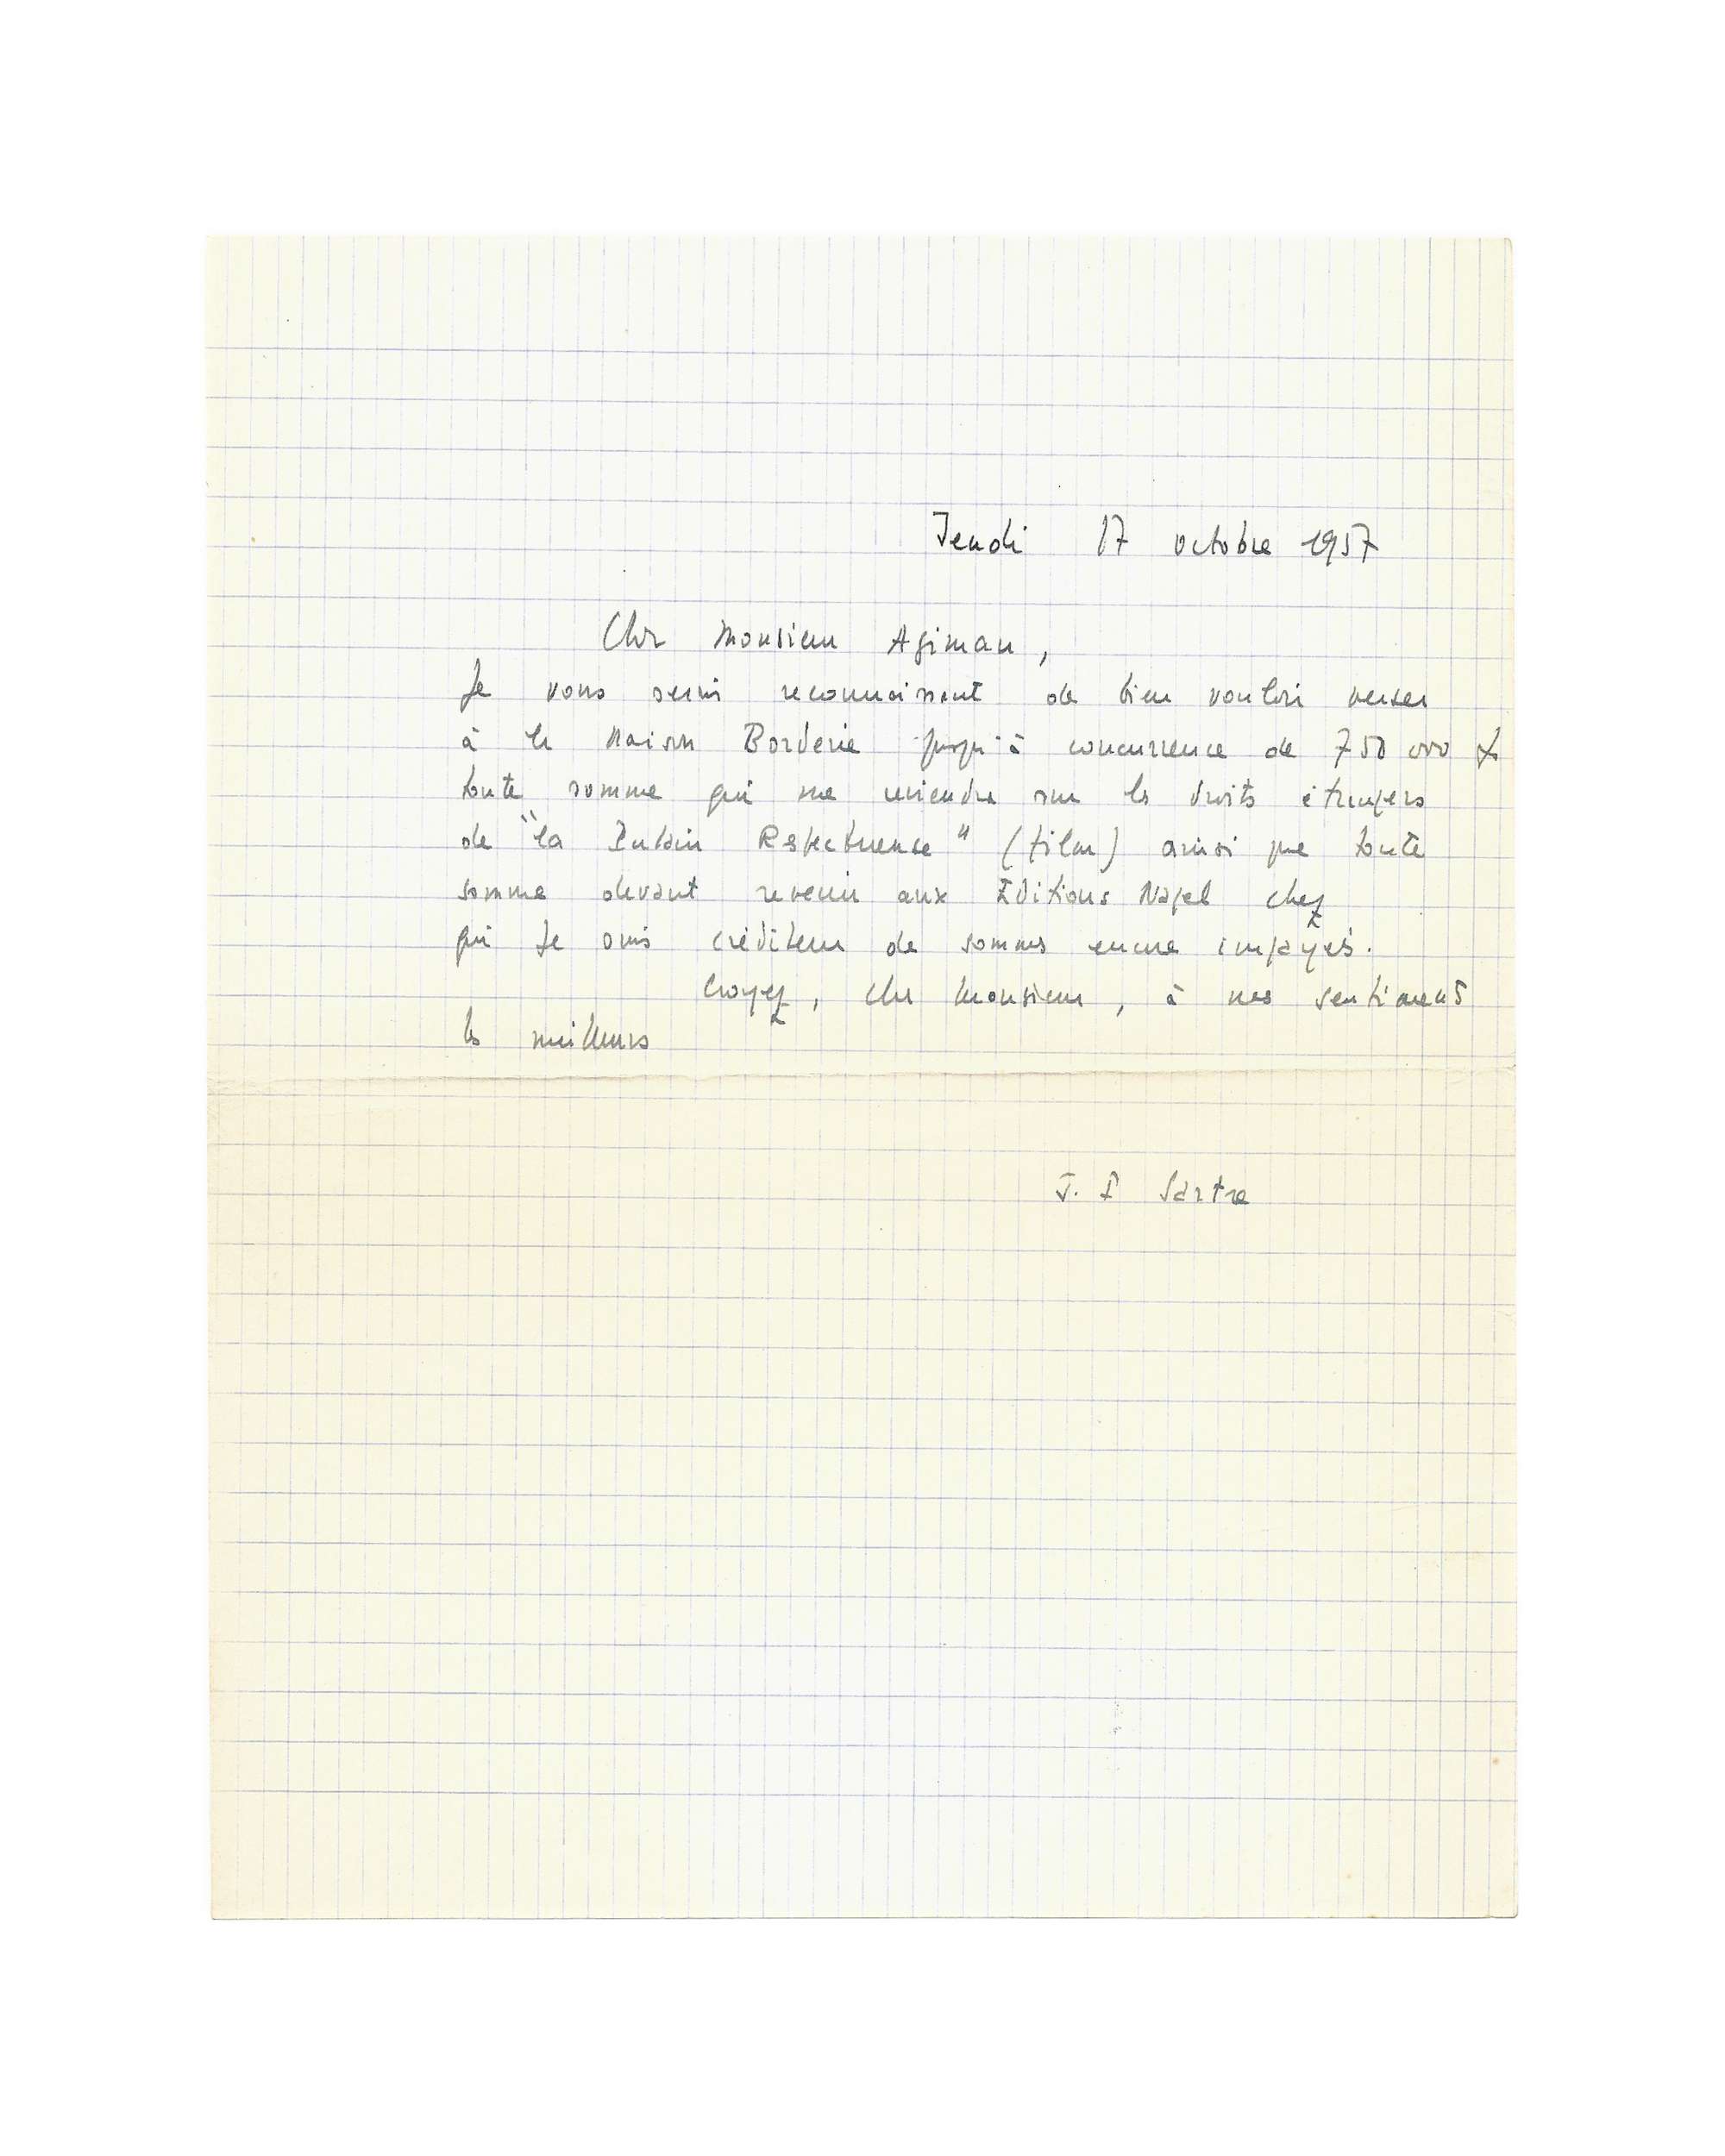 Jeudi 17 octobre 1957
Cher Monsieur Agiman,
Je vous serai reconnaissant de bien vouloir verser
à la Maison Borderie jusqu'à concurrence de 750 000
toute somme qui me reviendra sur les droits étrangers
de "la Putain Respectueuse" (film) ainsi que toute
somme devant revenir aux Editions Nagel chez
qui je suis créditeur de sommes encore impayés.
Croyez, cher Monsieur, à mes sentiments
les meilleurs
J. P Sartre